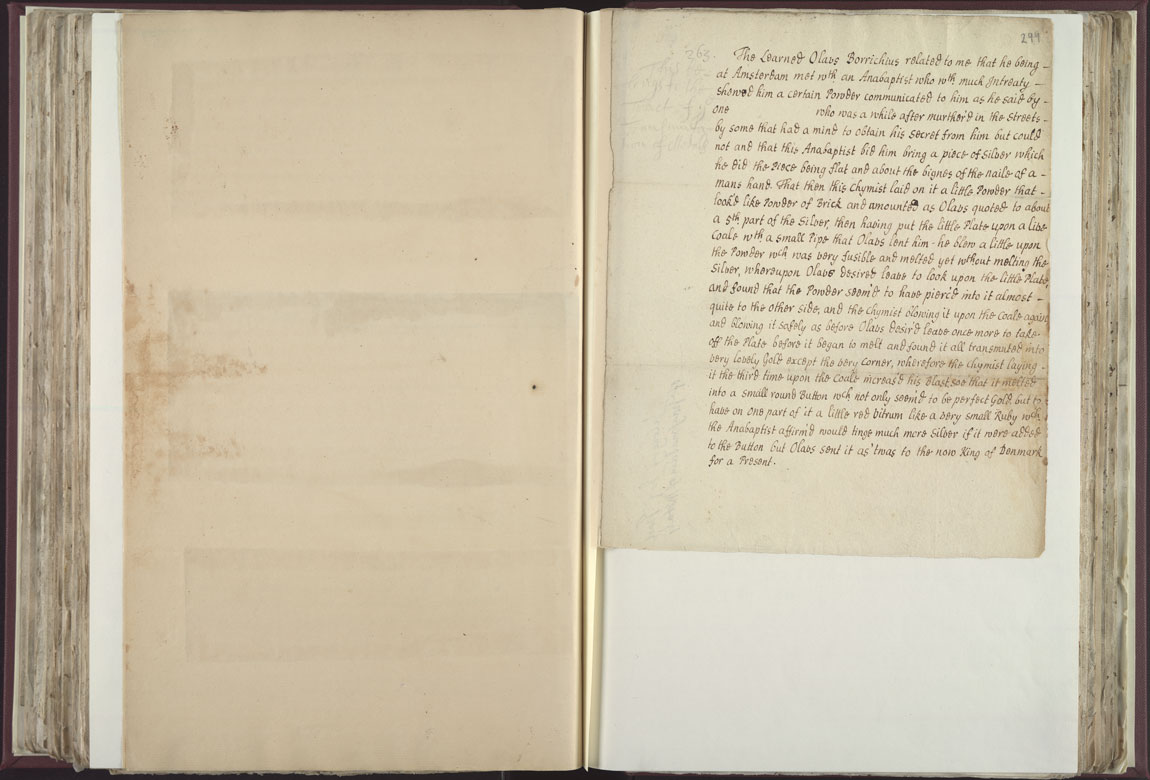 299
263.
The Learned Olavs Borrichius related to me that he being -
at Amsterdam met wth an Anabaptist who wth much Intreaty -
showed him a certain Powder communicated to him as he said by -
one who was a while after murther'd in the streets -
by some that had a mind to obtain his secret from him but could
not and that this Anabaptist bid him bring a piece of Silver which
he did the Piece being flat and about the bignes of the naile of a -
mans hand. That then this Chymist laid on it a little Powder that -
look'd like Powder of Brick and amounted as Olavs quoted to about
a 5th part of the Silver, then having put the little Plate upon a live
Coale wth a small Pipe that Olavs lent him - he blew a little upon
the Powder wch was very fusible and melted yet wthout melting the
Silver, whereupon Olavs desired leave to look upon the little Plate
and found that the Powder seem'd to have pierc'd into it almost -
quite to the other side, and the Chymist blowing it upon the Coale again
and blowing it safely as before Olavs desir'd leave once more to take
off the Plate before it began to melt and found it all transmuted into
very lovely Gold except the very Corner, wherefore the Chymist laying -
it the third time upon the Coale increas'd his blast soe that it melted
into a small round Button wch not only seem'd to be perfect Gold, but to
have on one part of it a little red vitrum like a very small Ruby wch
the Anabaptist affirm'd would tinge much more Silver if it were added
to the Button but Olavs sent it as 'twas to the now King of Denmark
for a Present.